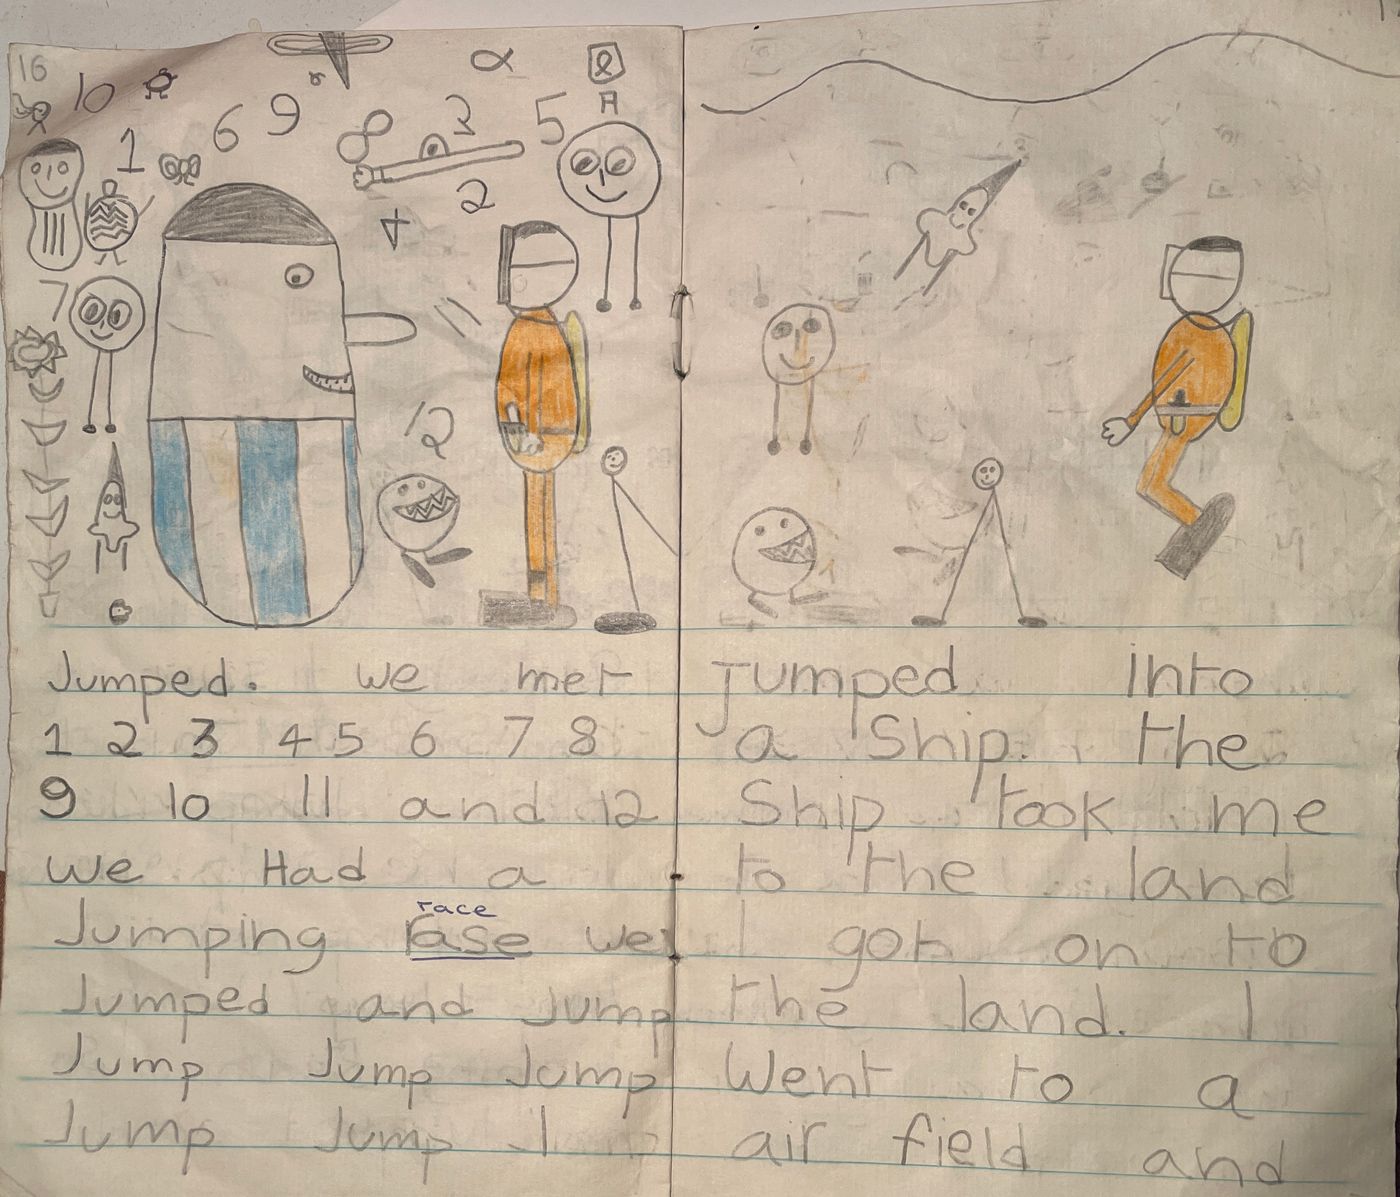 16
10
1
6
9
8
3
5
2
4
7
12
Jumped. we met
1 2 3 4 5 6 7 8
9 10 11 and 12
we Had a
race
Jumping rase we
Jumped and Jump
Jump Jump Jump
Jump Jump
jumped into
a Ship. the
Ship took me
to the land
I got on to
the land. I
Went to a
air field and